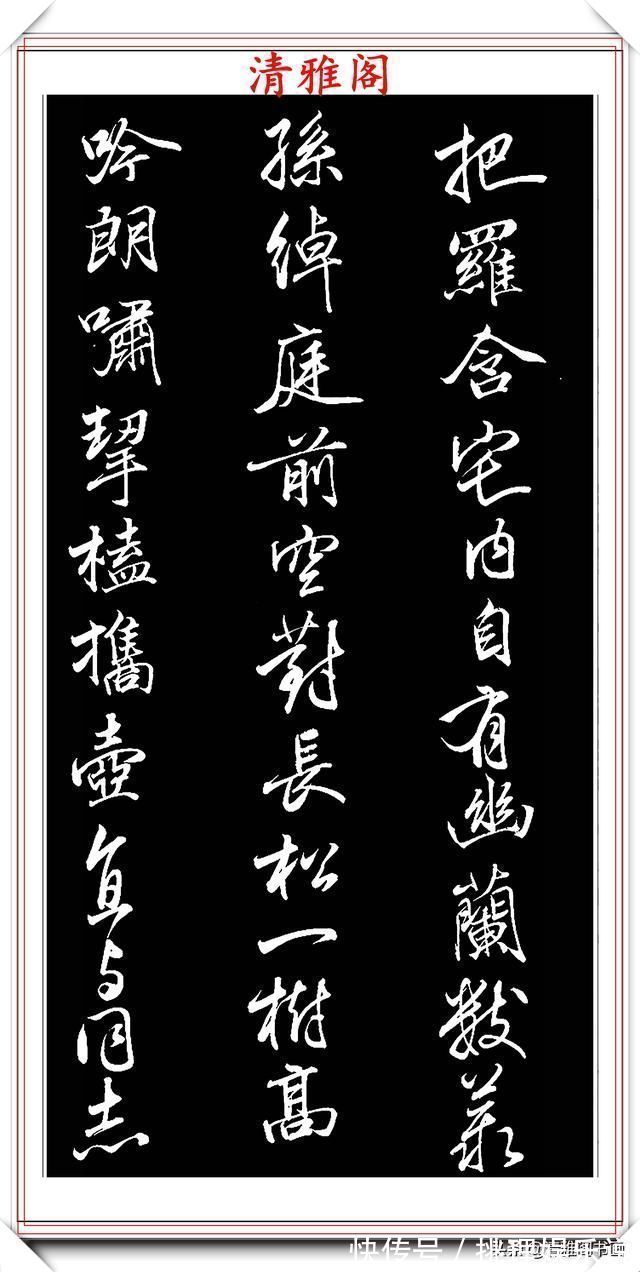 清雅阁
把羅含宅内自有幽蘭數叢
孫綽庭前空對長松一樹高
吟朗嘯挈榼攜壺直与同志
快传号 /